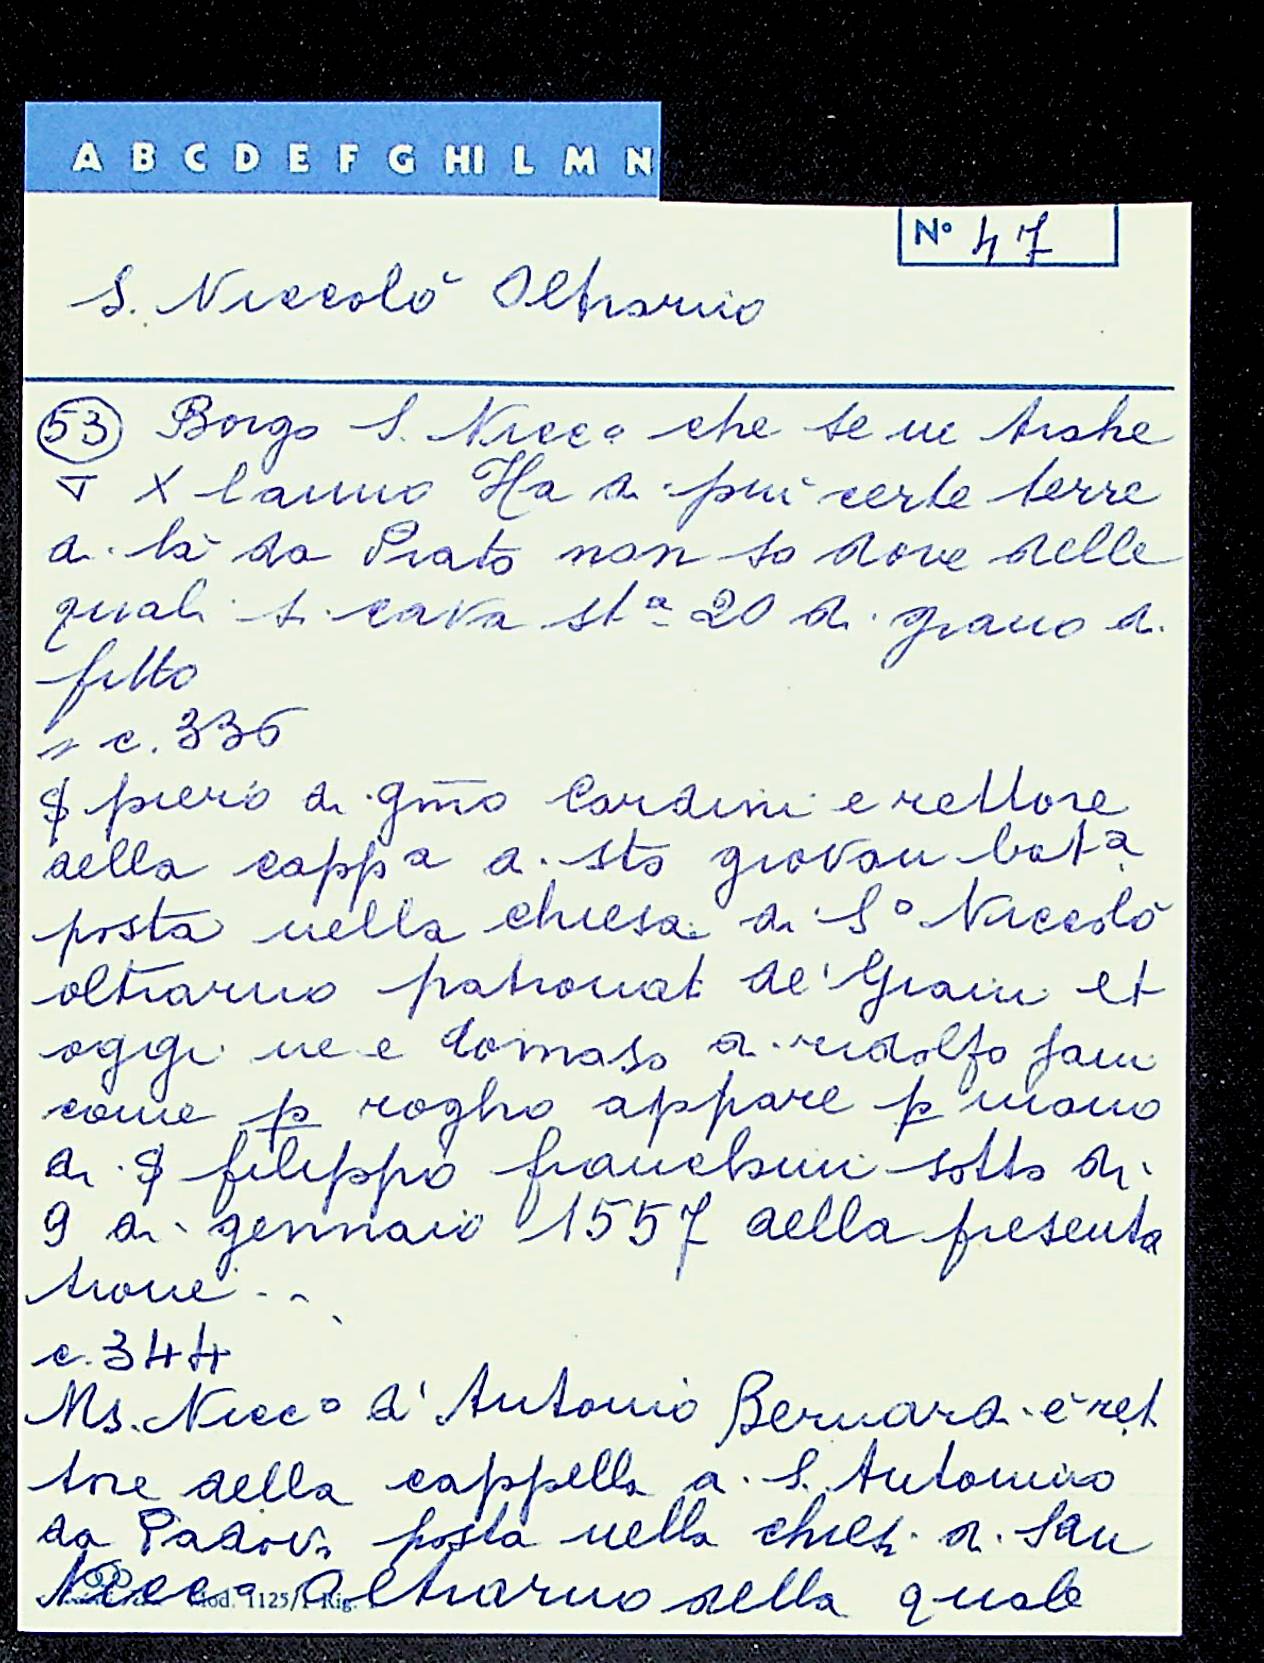 A B C D E F G HI L M N
N° 47
S. Niccolò Oltrarno
53 Borgo S. Nicco che se ne trahe
X l'anno Ha di più certe terre
di là da Prato non so dove delle
quali si cava sta 20 di grano di
fitto
c. 336
piero di gmo Cardini e rettore
della cappa di sto giovan bata
posta nella chiesa di So Niccolò
oltrarno patronati de' et
oggi ne e domaso di ridolfo
come p rogho appare p mano
di filippo sotto di
9 di gennaio 1557 della presenta
tione...
c. 344
Ms. Nicco d'Antonio Bernardi è ret
tore della cappella di S. Antonino
da Padova posta nella chiesa di San
Nicco Oltrarno della quale
Mod. 1125/1 Rig.